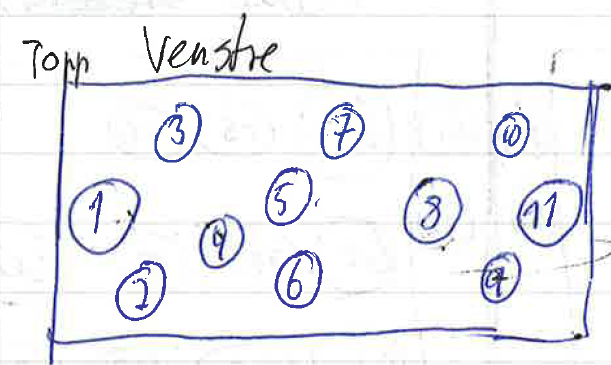 Topp Venstre
3 7 10
1 5 8 11
4
2 6 9